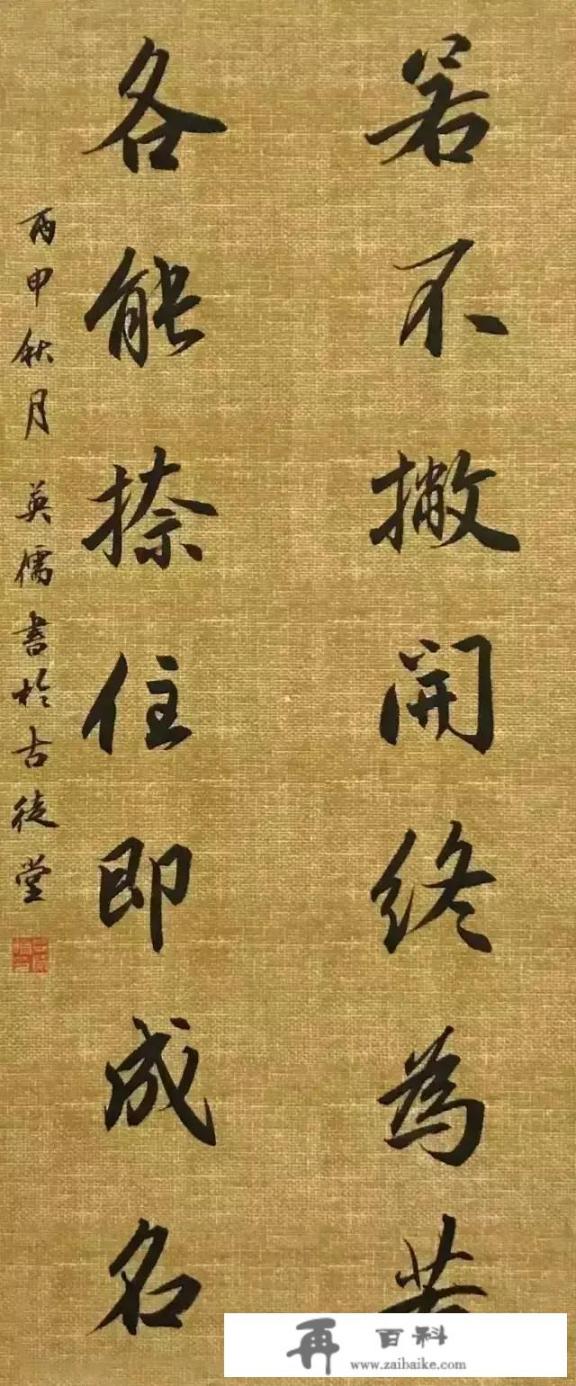 若不撇開終為
各能捺住即成名
丙申秋月英儒書於古徒堂
再百科
www.zaibaike.com